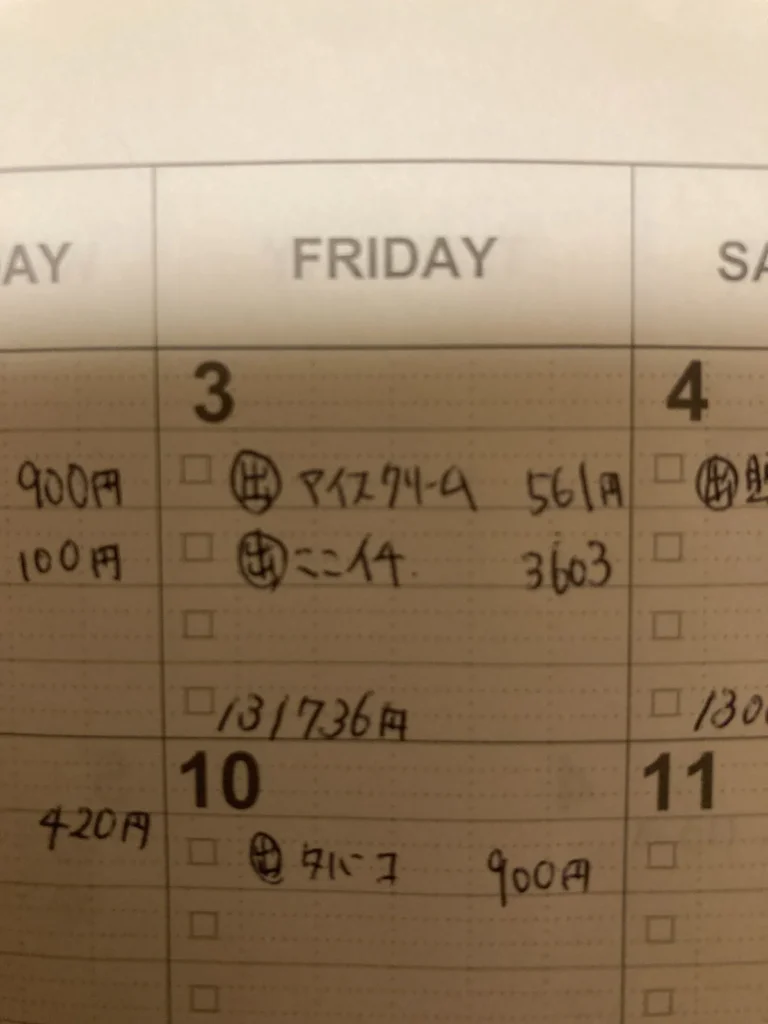 AY FRIDAY SA
3 4
900円 出 アイスクリーム 561円 出
100円 出 ココイチ 3603
131736円 130
10 11
420円
出 タバコ 900円